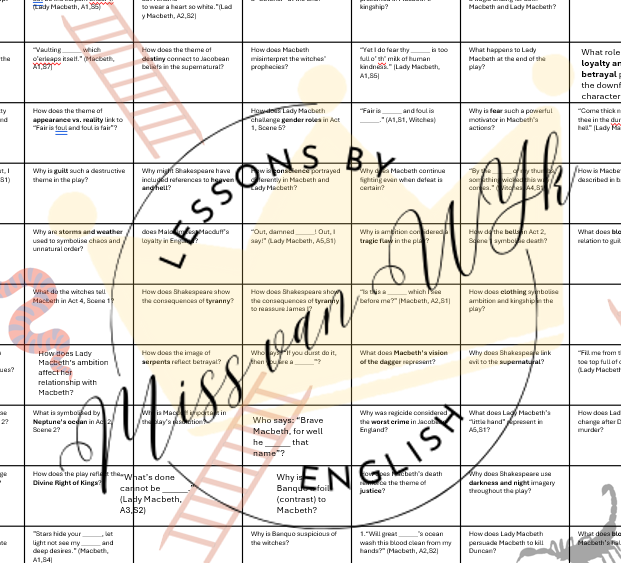 (Lady Macbeth, A1,S5)
to wear a heart so white."(Lad
y Macbeth, A2,S2)
kingship?
Macbeth and Lady Macbeth?
"Vaulting _____ which
o'erleaps itself." (Macbeth,
A1,S7)
How does the theme of
destiny connect to Jacobean
beliefs in the supernatural?
How does Macbeth
misinterpret the witches'
prophecies?
"Yet I do fear thy _____ is too
full o' th' milk of human
kindness." (Lady Macbeth,
A1,S5)
What happens to Lady
Macbeth at the end of the
play?
What role
loyalty an
betrayal p
the downf
character
How does the theme of
appearance vs. reality link to
"Fair is foul and foul is fair"?
How does Lady Macbeth
challenge gender roles in Act
1, Scene 5?
"Fair is _____ and foul is
_____." (A1,S1, Witches)
Why is fear such a powerful
motivator in Macbeth's
actions?
"Come thick n
thee in the dun
hell" (Lady Ma
Why is guilt such a destructive
theme in the play?
Why might Shakespeare have
included references to heaven
and hell?
How is conscience portrayed
differently in Macbeth and
Lady Macbeth?
Why does Macbeth continue
fighting even when defeat is
certain?
"By the _____ of my thumbs,
something wicked this way
comes." (Witches, A4,S1)
How is Macbe
described in b
Why are storms and weather
used to symbolise chaos and
unnatural order?
does Malcolm test Macduff's
loyalty in England?
"Out, damned _____! Out, I
say!" (Lady Macbeth, A5,S1)
Why is ambition considered a
tragic flaw in the play?
How do the bells in Act 2,
Scene 1 symbolise death?
What does blo
relation to guil
What do the witches tell
Macbeth in Act 4, Scene 1?
How does Shakespeare show
the consequences of tyranny?
How does Shakespeare show
the consequences of tyranny
to reassure James I?
"Is this a _____ which I see
before me?" (Macbeth, A2,S1)
How does clothing symbolise
ambition and kingship in the
play?
How does Lady
Macbeth's ambition
affect her
relationship with
Macbeth?
How does the image of
serpents reflect betrayal?
Who says: "If you durst do it,
then you see a _____"?
What does Macbeth's vision
of the dagger represent?
Why does Shakespeare link
evil to the supernatural?
"Fill me from t
toe top full of c
(Lady Macbeth
What is symbolised by
Neptune's ocean in Act 2,
Scene 2?
Why is Macduff important in
the play's resolution?
Who says: "Brave
Macbeth, for well
he _____ that
name"?
Why was regicide considered
the worst crime in Jacobean
England?
What does Lady Macbeth's
"little hand" represent in
A5,S1?
How does Lad
change after D
murder?
How does the play reflect the
Divine Right of Kings?
"What's done
cannot be _____."
(Lady Macbeth,
A3,S2)
Why is
Banquo a foil
(contrast) to
Macbeth?
How does Macbeth's death
reinforce the theme of
justice?
Why does Shakespeare use
darkness and night imagery
throughout the play?
"Stars hide your _____, let
light not see my _____ and
deep desires." (Macbeth,
A1,S4)
Why is Banquo suspicious of
the witches?
1."Will great _____'s ocean
wash this blood clean from my
hands?" (Macbeth, A2,S2)
How does Lady Macbeth
persuade Macbeth to kill
Duncan?
What does blo
LESSONS BY
Miss van Wyk
ENGLISH